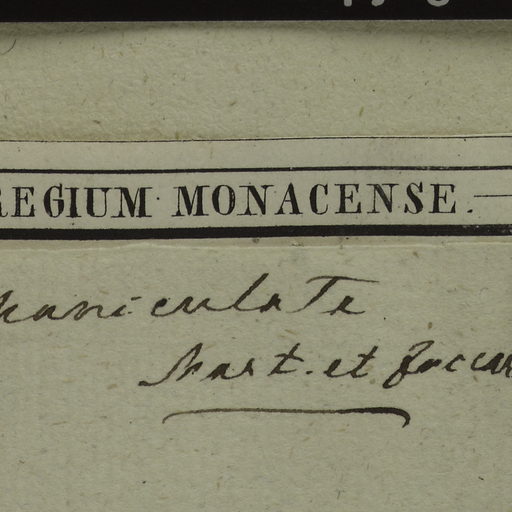 REGIUM MONACENSE.
paniculata
Mart. et Zuccar